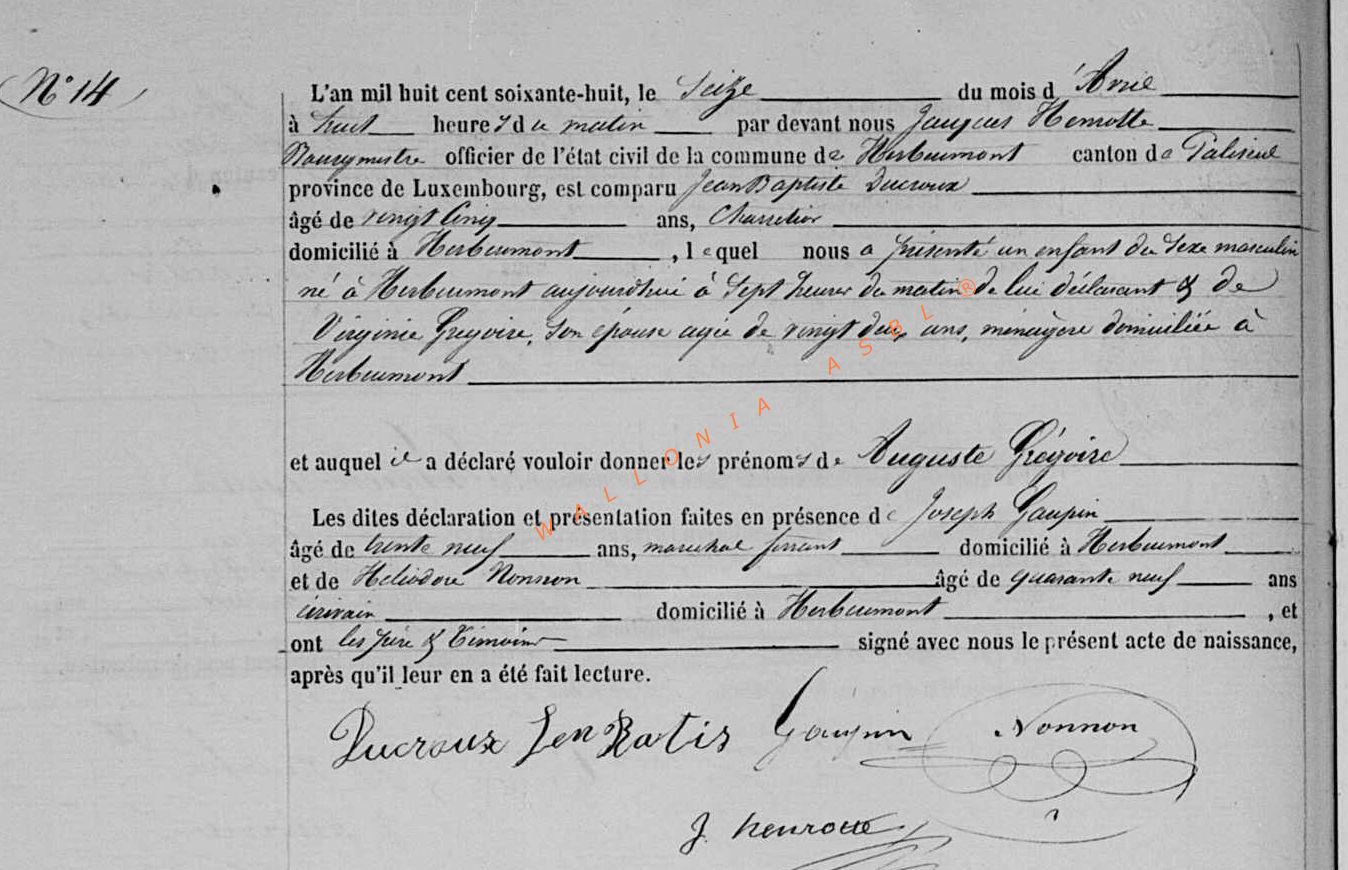 N° 14
L'an mil huit cent soixante-huit, le Seize du mois d'Avril
à huit heures du matin par devant nous Jacques Henrotte
Bourgmestre officier de l'état civil de la commune de Herbeumont canton de Paliseul
province de Luxembourg, est comparu Jean Baptiste Ducroux
âgé de vingt Cinq ans, Charretier
domicilié à Herbeumont, lequel nous a présenté un enfant du Sexe masculin
né à Herbeumont aujourdhui à Sept heures du matin de lui déclarant & de
Virginie Gregoire, Son épouse agée de vingt deux ans, ménagère domiciliée à
Herbeumont
et auquel il a déclaré vouloir donner les prénoms de Auguste Grégoire
Les dites déclaration et présentation faites en présence de Joseph Gaupin
âgé de trente neuf ans, marechal ferrant domicilié à Herbeumont
et de Heliodore Nonnon âgé de quarante neuf ans
écrivain domicilié à Herbeumont, et
ont les père & témoins signé avec nous le présent acte de naissance,
après qu'il leur en a été fait lecture.
Ducroux Jen Batis Gaupin Nonnon
J. henrotte
WALLONIA ASBL ®